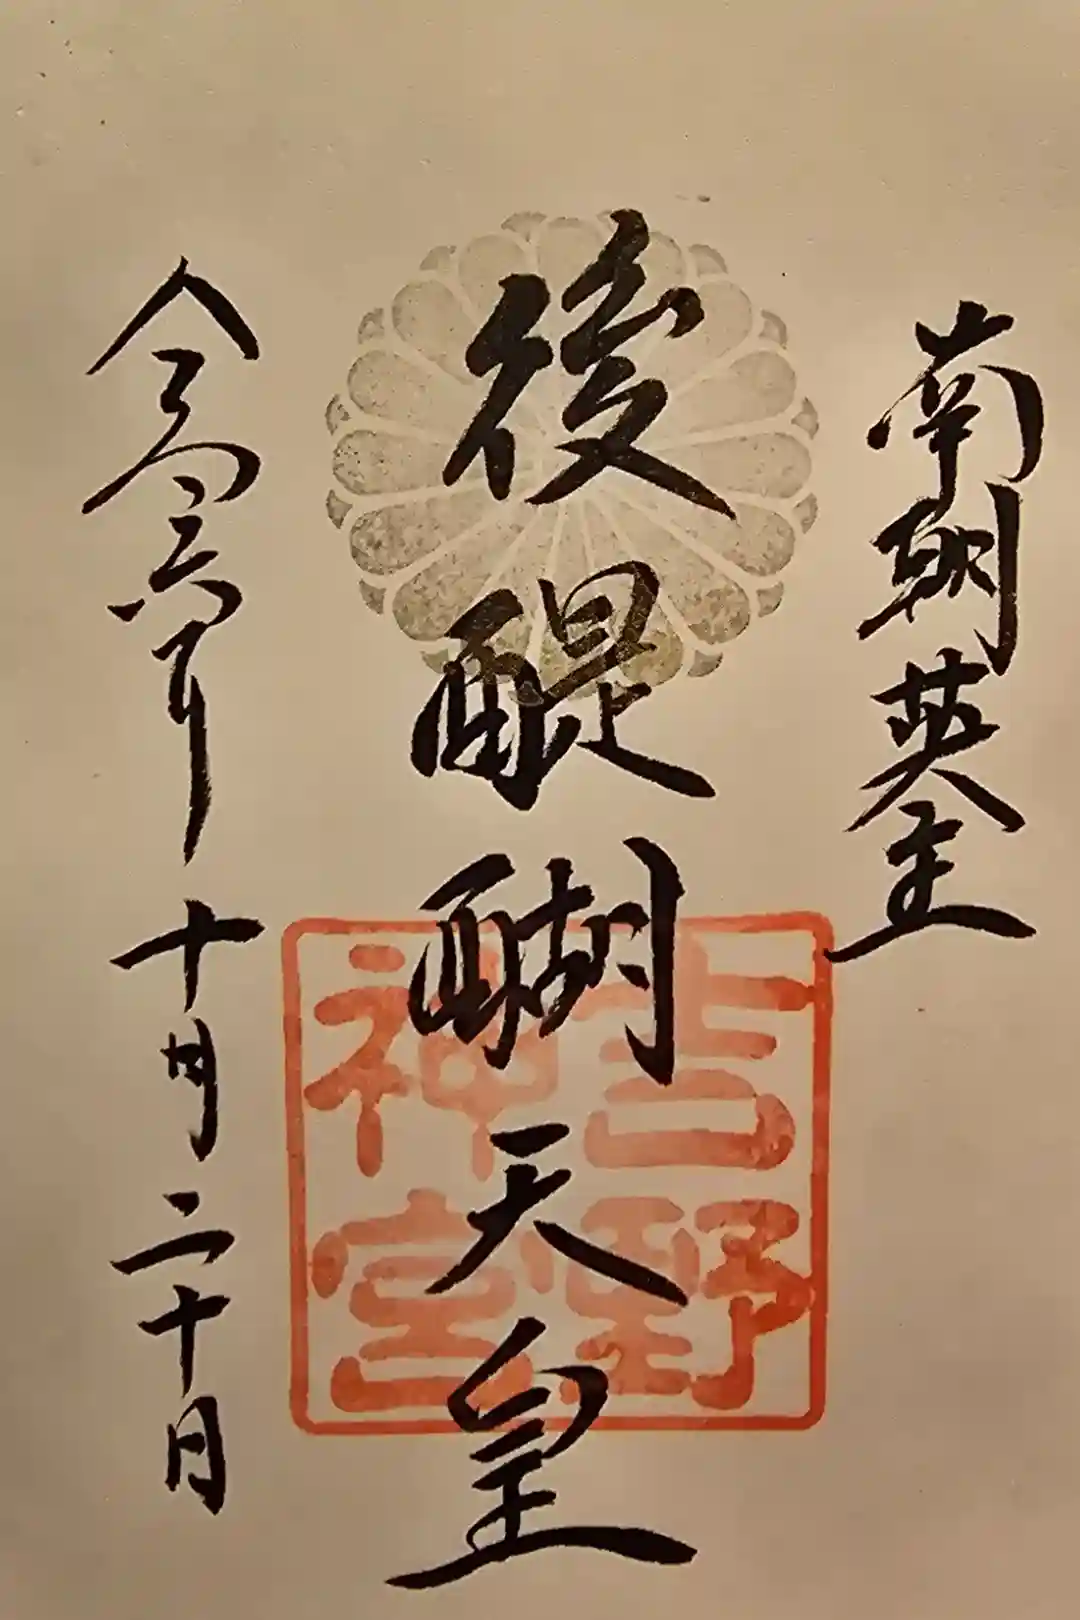 南朝英主
後醍醐天皇
吉野
神宮
令和六年十月二十日